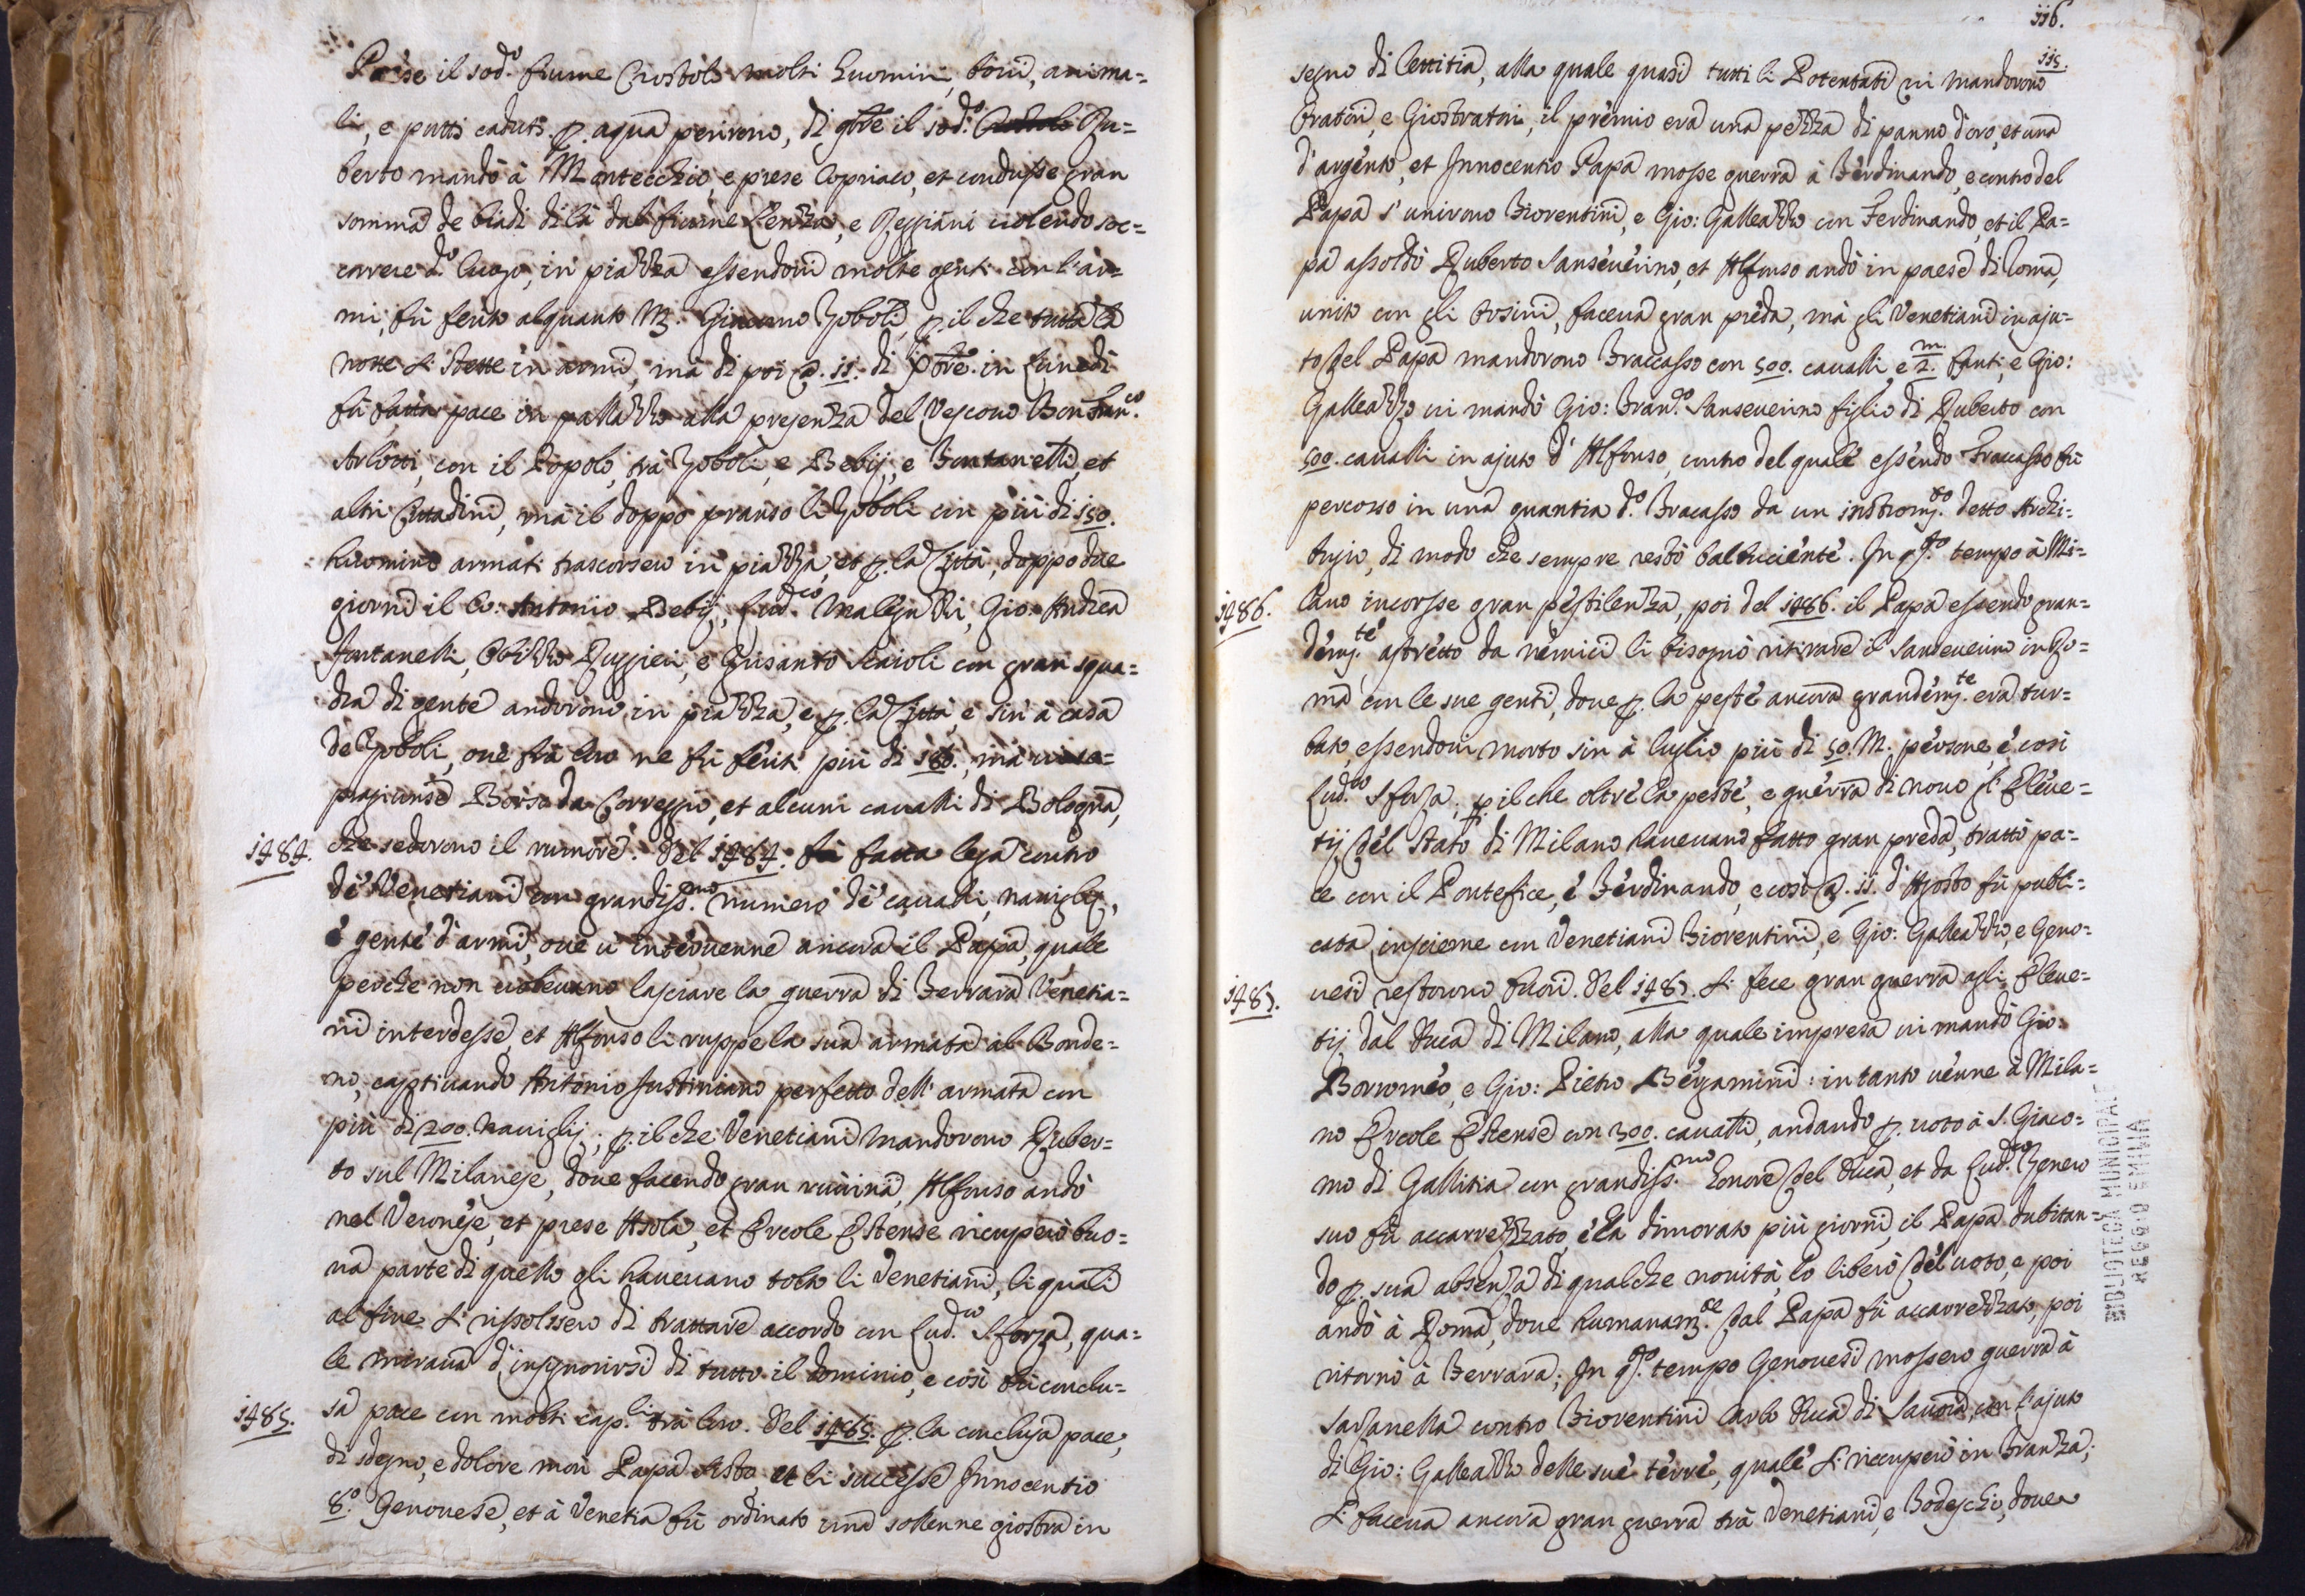 Pose il sod.º fiume Crostolo molti huomini, bovi, anima=
li, e putti caduti p. aqua perirono, di 9bre il sod.º Ru=
berto mandò à Montecchio, e prese Copriaco, et condusse gran
somma de biadi di là dal fiume Lenza, e Reggiani volendo soc=
correre d.º luogo, in piazza essendovi molte genti con l'ar=
mi, fù ferito alquanto M. Giacomo Zoboli, p. il che tutta la
notte si stette in armi, mà di poi @. 11. di Xbre. in Lunedi
fù fatta pace in pallazzo alla presenza del Vescovo Bon Fran.co
Arlotti, con il Popolo, trà Zoboli, e Bebij, e Fontanelli, et
altri Cittadini, mà il doppo pranso li Zoboli con più di 150.
huomini armati trascorsero in piazza, et p. la Città, doppo due
giorni il Co: Antonio Bebij, Lud.co Malaguzzi, Gio: Andrea
Fontanelli, Obizzo Ruggieri, e Grisanto Scaioli con gran squa=
dra di gente andorono in piazza, e p. la Città, e sin' à casa
de Zoboli, ove frà loro ne fù feriti più di 180., mà vi so=
pragiunse Borso da Correggio, et alcuni cavalli di Bologna,
1484. che sedorono il rumore. Del 1484. fù fatta lega contro
de' Venetiani con grandiss.mo numero de' cavalli, navigli,
è gente d'armi, ove u' intervenne ancora il Papa, quale
perche non volevano lasciare la guerra di Ferrara Venetia=
ni interdesse, et Alfonso li ruppe la sua armata al Bonde=
no, captivando Antonio Justiniano perfetto dell' armata con
più di 200. Naviglij; p. il che Venetiani mandorono Ruber=
to sul Milanese, dove facendo gran ruuina, Alfonso andò
nel Veronese, et prese Asola, et Ercole Estense ricuperò buo=
na parte di quello gli havevano tolto li Venetiani, li quali
al fine si rissolsero di trattare accordo con Lud.co Sforza, qua=
le mirava d'insignorirsi di tutto il dominio, e così fù conclu=
1485. sa pace con molti cap.li trà loro. Del 1485. p. la conclusa pace,
di sdegno, e dolore morì Papa Sisto, et li successe Innocentio
8.º Genovese, et à Venetia fù ordinato una sollenne giostra in
116.
115.
segno di lettitia, alla quale quasi tutti li Potentati vi mandorono
Oratori, e Giostratori, il premio era una pezza di panno d'oro, et una
d'argento, et Innocentio Papa mosse guerra à Ferdinando, e contro del
Papa s'unirono Fiorentini, e Gio: Galleazzo con Ferdinando, et il Pa=
pa assoldò Ruberto Sanseverino, et Alfonso andò in paese di Roma,
unito con gli Orsini, faceva gran preda, mà gli Venetiani in aju=
to del Papa mandorono Fraccasso con 500. cavalli e 2.m fanti, e Gio:
Galleazzo vi mandò Gio: Fran.co Sanseverino figlio di Ruberto con
500. cavalli in ajuto d'Alfonso, contro del quale essendo Fraccasso fù
percosso in una guantia d.º Fracasso da un instrom.to detto Archi=
bugio, di modo che sempre restò balbuciente. In q.to tempo à Mi=
1486. lano incorsse gran pestilenza, poi del 1486. il Papa essendo gran=
dem.te astretto da nemici li bisognò ritirare il Sanseverino in Ro=
ma con le sue genti, dove p. la peste ancora grandem.te era tur=
bato, essendovi morto sin à luglio più di 50. M. persone, e così
Lud.co Sforza; p. il che oltre la peste, e guerra di novo gl' Elve=
tij del Stato di Milano havevano fatto gran preda, trattò pa=
ce con il Pontefice, è Ferdinando, e così @. 11. d'Agosto fù publi=
cata insieme con Venetiani Fiorentini, e Gio: Galleazzo, e Geno=
1487. vesi restorno fuori. Del 1487. si fece gran guerra agli Elve=
tij dal Duca di Milano, alla quale impresa vi mandò Gio:
Borromeo, e Gio: Pietro Bergamini: in tanto venne à Mila=
no Ercole Estense con 300. cavalli, andando p. voto à S. Giaco=
mo di Gallitia con grandiss.mo honore del Duca, et da Lud.co Genero
suo fù accarrezzato, e là dimorato più giorni, il Papa dubitan=
do p. sua absenza di qualche novità, lo liberò del voto, e poi
andò à Roma, dove humanam.te dal Papa fù accarrezzato, poi
ritornò à Ferrara; In q.to tempo Genovesi mossero guerra à
Sarzanella contro Fiorentini Carlo Duca di Savoia, con l'ajuto
di Gio: Galleazzo delle sue terre, quale si ricuperò in Franza;
Si faceva ancora gran guerra trà Venetiani, e Todeschi, dove
BIBLIOTECA MUNICIPALE
REGGIO EMILIA